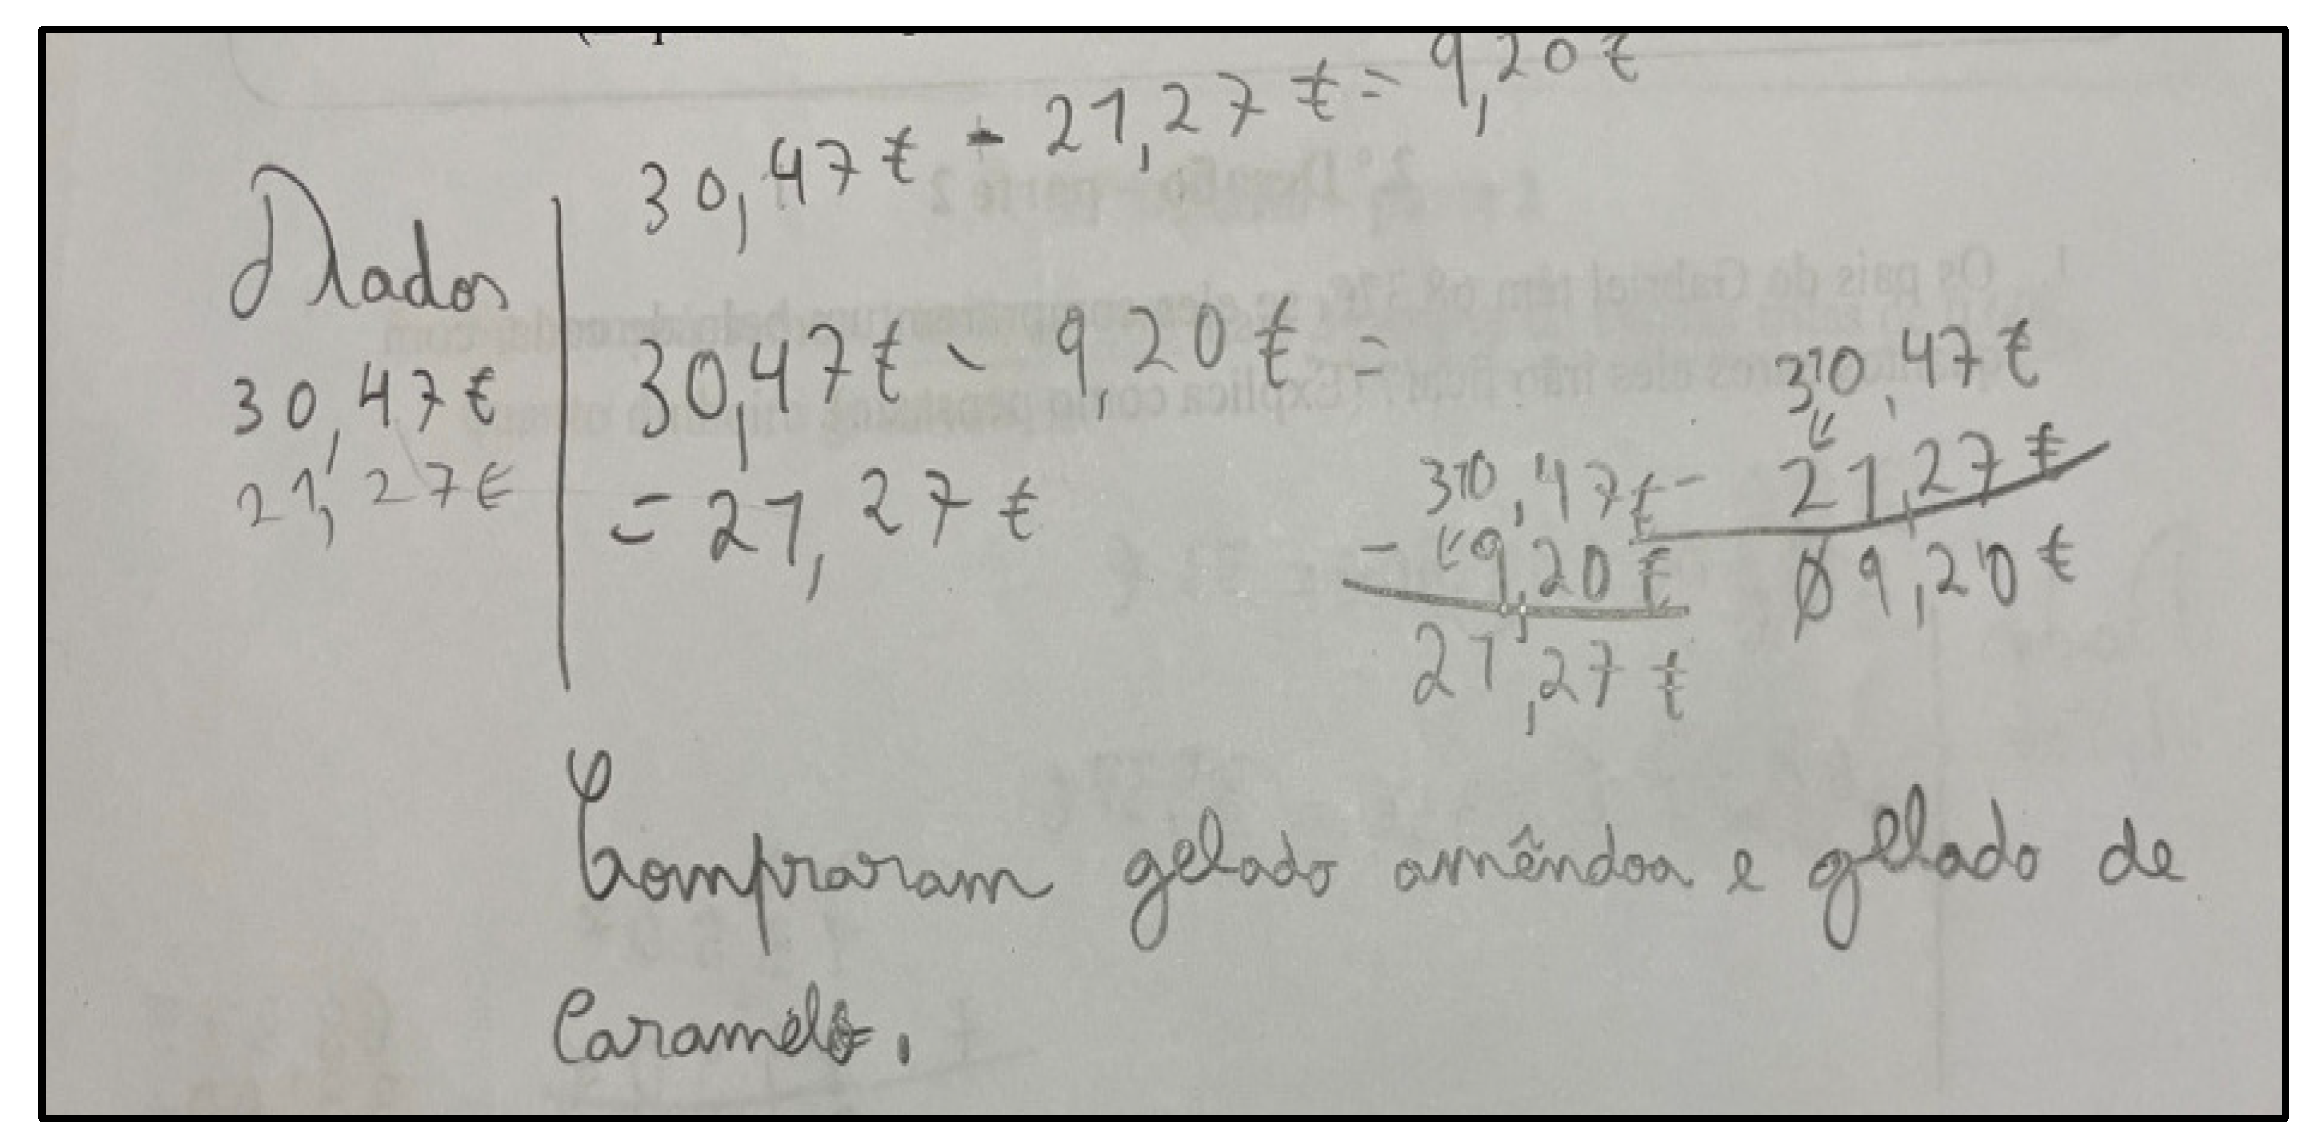 30,47€ - 21,27€ = 9,20€
Dados
30,47€
21,27€
30,47€ - 9,20€ =
= 21,27€
310,47€
- 21,27€
09,20€
310,47€
- 9,20€
21,27€
Compraram gelado amêndoa e gelado de
Caramelo.